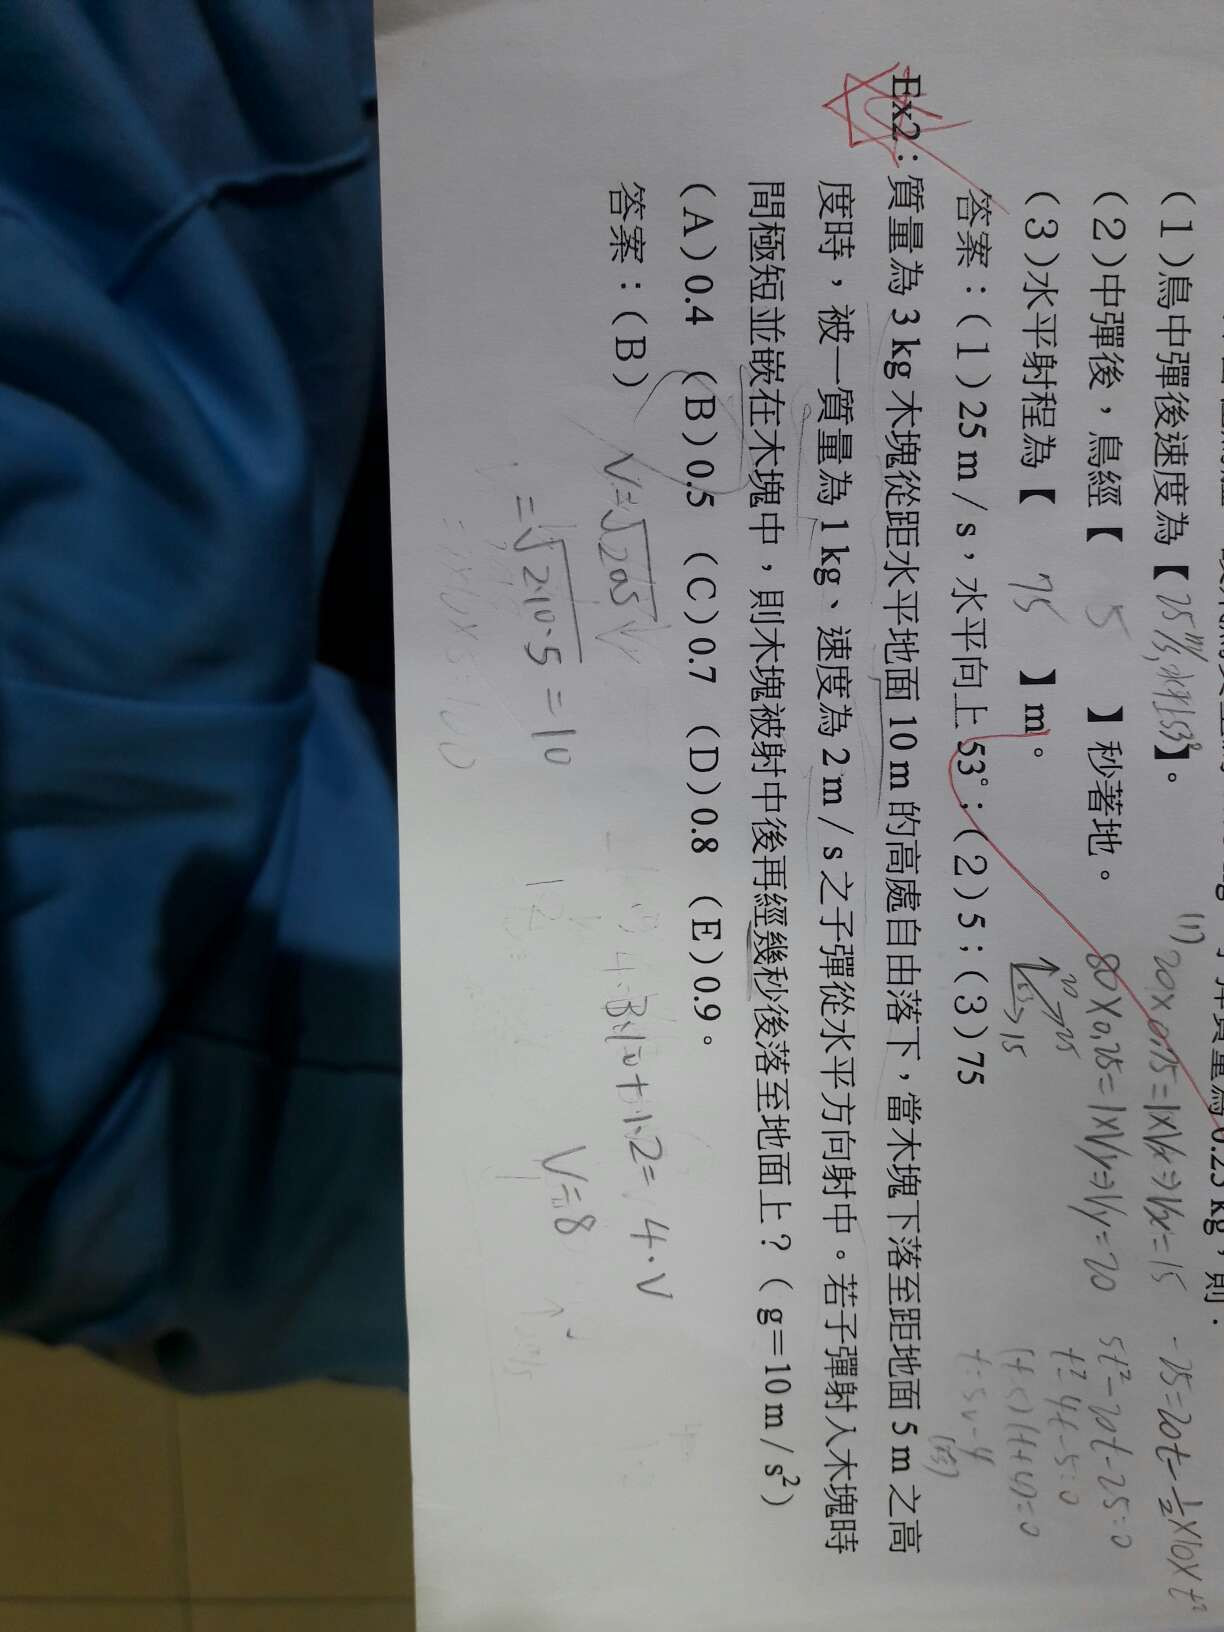 (1)鳥中彈後速度為【25m/s,水平上53°】。
(2)中彈後，鳥經【 5 】秒著地。
(3)水平射程為【 75 】m。
答案：(1)25 m／s，水平向上 53°；(2)5；(3)75
Ex2：質量為 3 kg 木塊從距水平地面 10 m 的高處自由落下，當木塊下落至距地面 5 m 之高
度時，被一質量為 1 kg、速度為 2 m／s 之子彈從水平方向射中。若子彈射入木塊時
間極短並嵌在木塊中，則木塊被射中後再經幾秒後落至地面上？（g＝10 m／s²）
(A)0.4 (B)0.5 (C)0.7 (D)0.8 (E)0.9。
答案：(B)
(1) 20×0.75=1×Vx⇒Vx=15
80×0.25=1×Vy⇒Vy=20
20 25 15
-25=20t-½×10×t²
5t²-20t-25=0
t²-4t-5=0
V=√2as
=√2·10·5=10
V=8